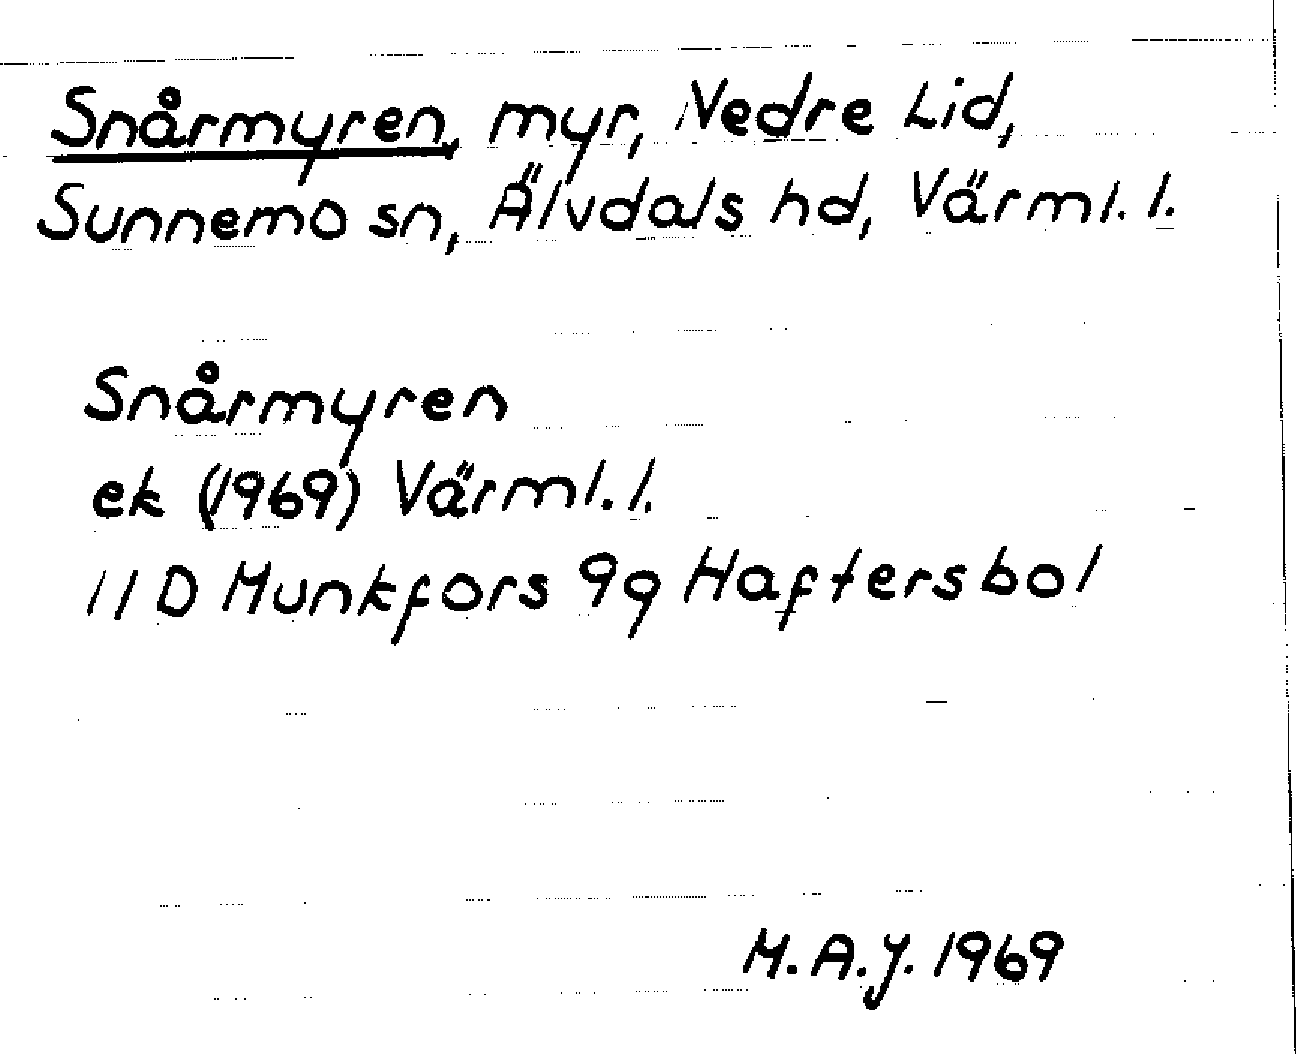 Snårmyren, myr, Nedre Lid,
Sunnemo sn, Älvdals hd, Värml. l.
Snårmyren
ek (1969) Värml. l.
11D Munkfors 9g Haftersbol
M.A.J. 1969